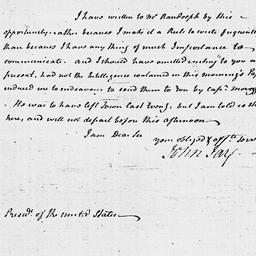 I have written to Mr Randolph by this
opportunity. rather because I make it a Rule to write frequently
than because I have any thing of much Importance to
communicate. and I should have omitted writing to you at
present, had not the Intelligence contained in this morning's
induced me to endeavour to send them to you by Capt.
He was to have left Town last Eveng, but I am told is still
here, and will not depart before this afternoon
I am Dear Sir
your obliged & affte
John Jay
Presidt. of the united States